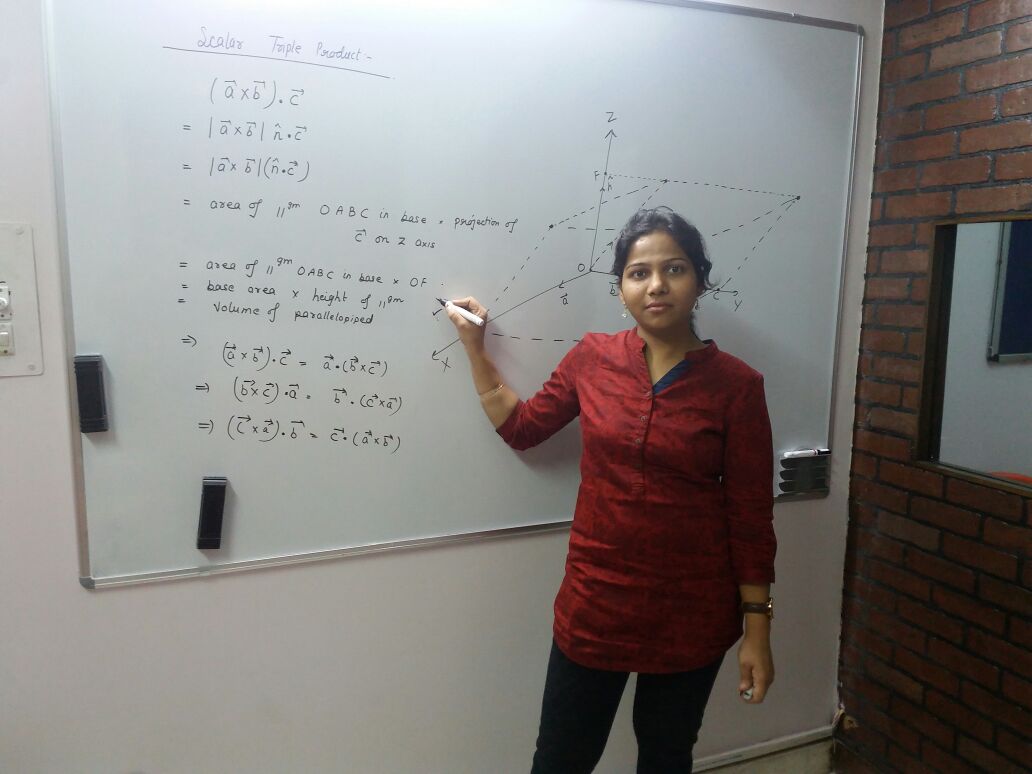 Scalar Triple Product :-
(a⃗ × b⃗) . c⃗
= |a⃗ × b⃗| n̂ . c⃗
= |a⃗ × b⃗| (n̂ . c⃗)
= area of ||gm OABC in base × projection of
c⃗ on Z axis
= area of ||gm OABC in base × OF .
= base area × height of ||gm
= Volume of parallelopiped
⇒ (a⃗ × b⃗) . c⃗ = a⃗ . (b⃗ × c⃗)
⇒ (b⃗ × c⃗) . a⃗ = b⃗ . (c⃗ × a⃗)
⇒ (c⃗ × a⃗) . b⃗ = c⃗ . (a⃗ × b⃗)
Z
F
n̂
O
a⃗
b⃗
C
Y
X